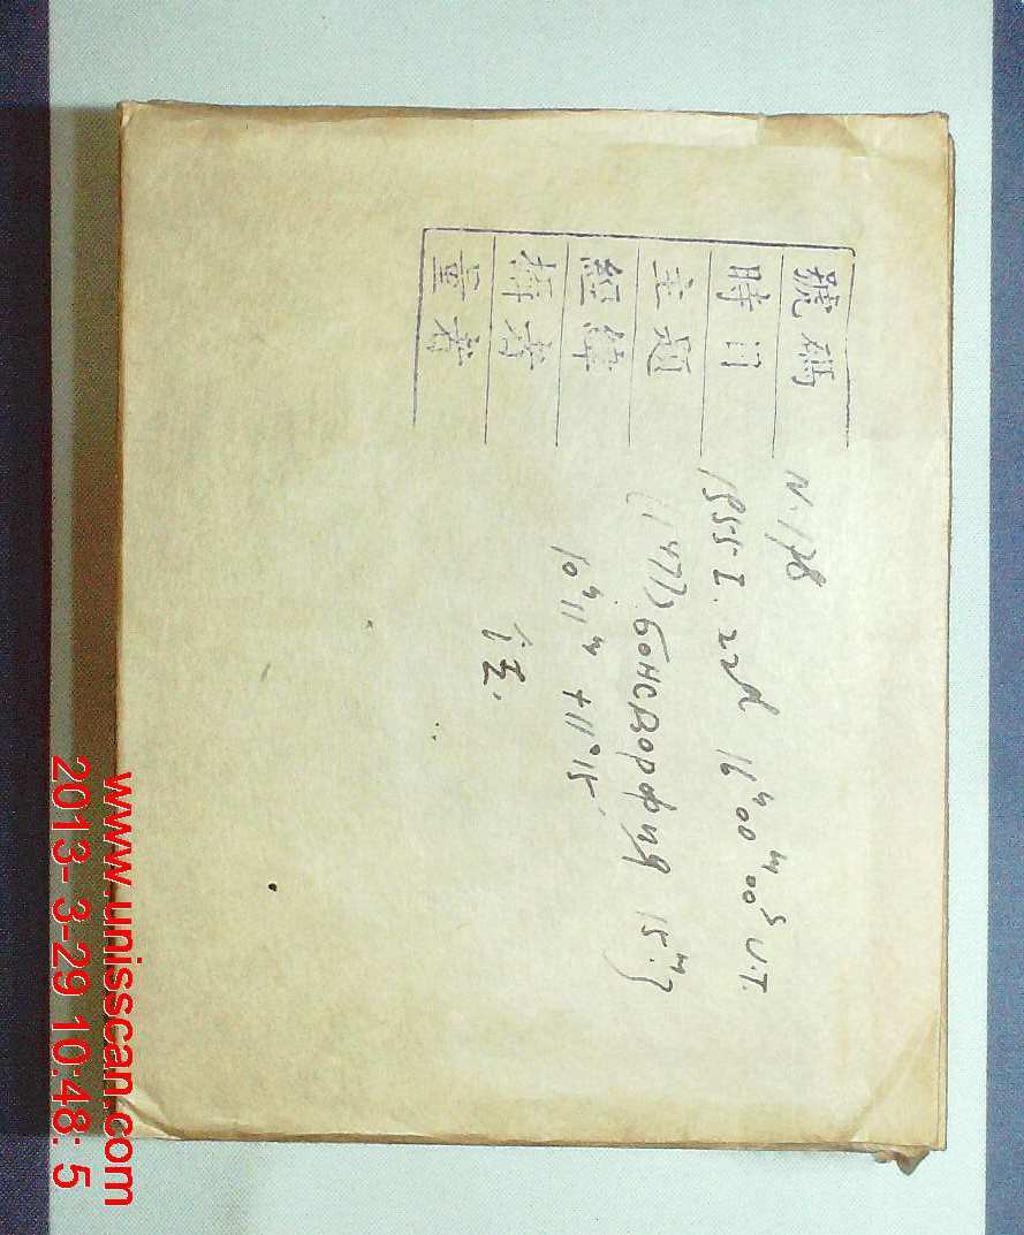 號碼 N. 178
時间 1955 I. 22d 16h00m00s U.T.
主題 (1477) Бонсдорффия 15m.7
經緯 10h11m +11°15′
攝者 汪.
量者
www.unisscan.com
2013- 3-29 10:48: 5